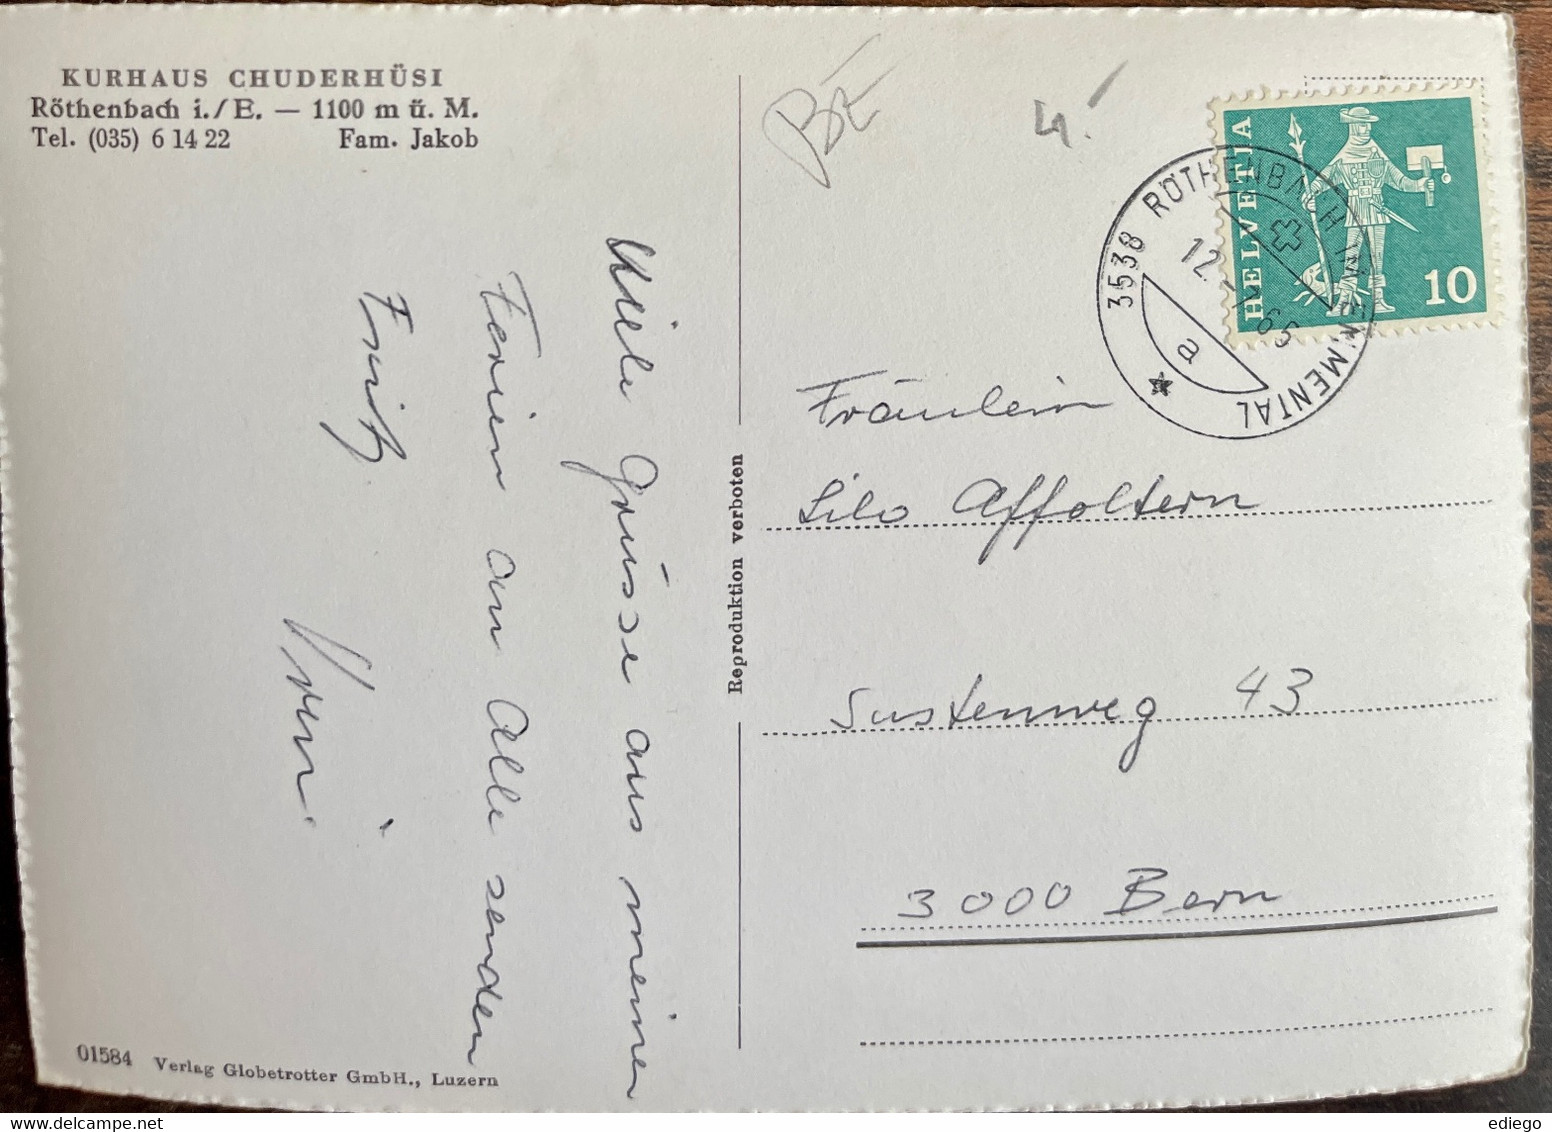 KURHAUS CHUDERHÜSI
Röthenbach i./E. — 1100 m ü. M.
Tel. (035) 6 14 22 Fam. Jakob
Viele Grüsse aus meinen
Ferien an Alle senden
Fritz
Vreni.
01584 Verlag Globetrotter GmbH., Luzern
Reproduktion verboten
BE
4.
HELVETIA
10
3538 RÖTHENBACH IM EMMENTAL
a
Fräulein
Lilo Affoltern
Sustenweg 43
3000 Bern
ediego